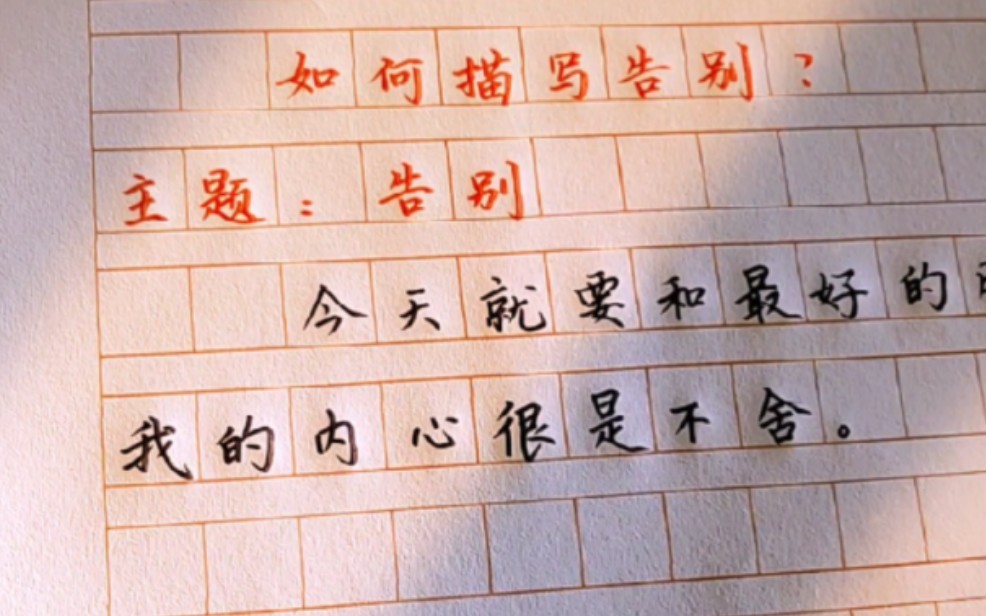 如何描写告别？
主题：告别
今天就要和最好的
我的内心很是不舍。